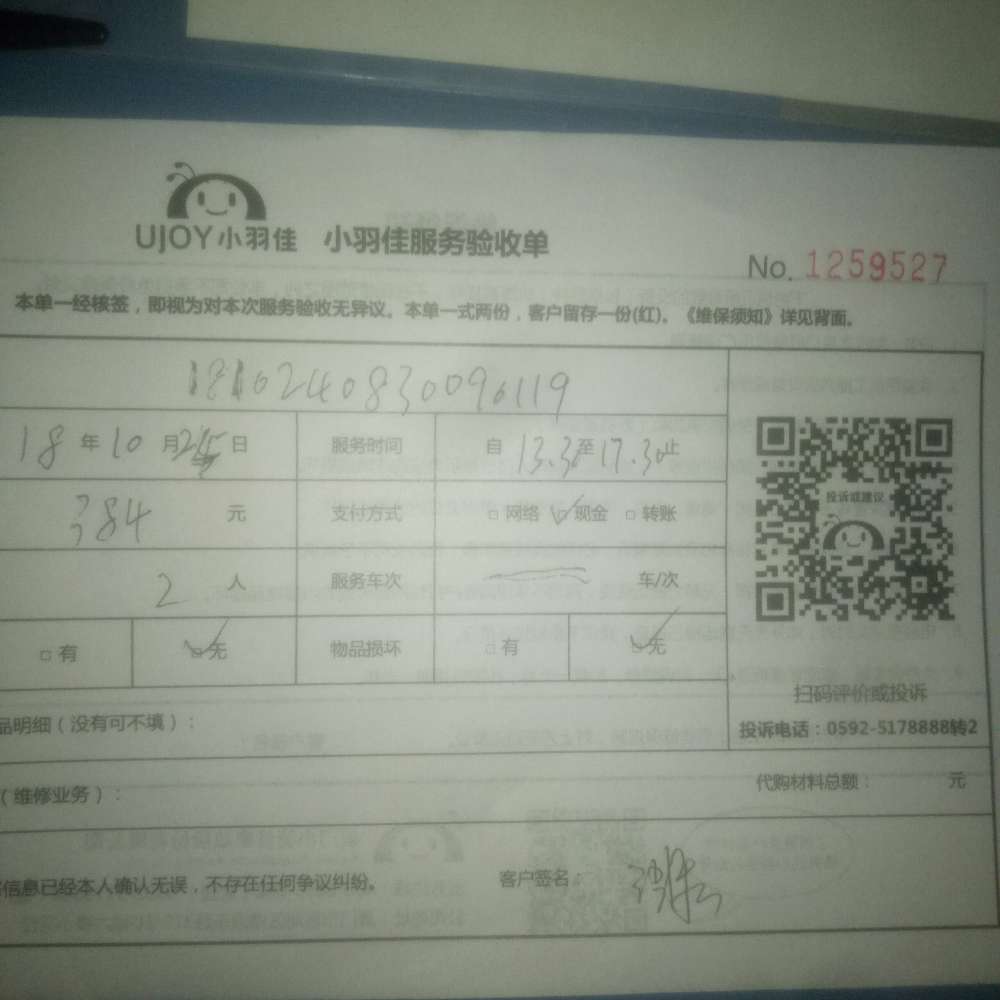 UJOY小羽佳 小羽佳服务验收单
No. 1259527
本单一经核签，即视为对本次服务验收无异议。本单一式两份，客户留存一份(红)。《维保须知》详见背面。
181024083009 6119
18 年 10 月 25 日 服务时间 自 13.30 至 17.30 止
384 元 支付方式 □ 网络 ☑ 现金 □ 转账
投诉或建议
2 人 服务车次 车/次
□ 有 ☑ 无 物品损坏 □ 有 ☑ 无
扫码评价或投诉
品明细（没有可不填）：
投诉电话：0592-5178888转2
（维修业务）： 代购材料总额： 元
信息已经本人确认无误，不存在任何争议纠纷。 客户签名：